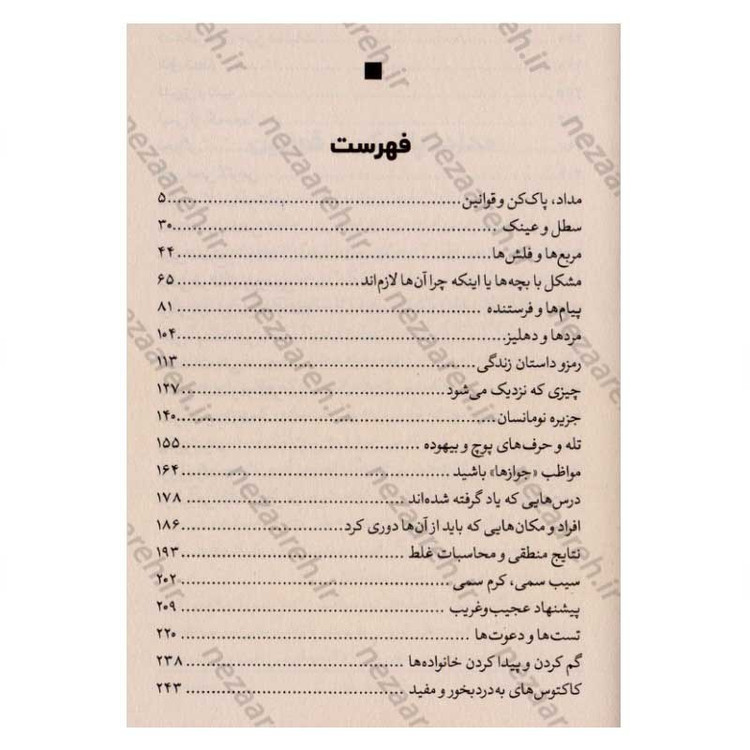 فهرست
مداد، پاک‌کن و قوانین ۵
سطل و عینک ۳۰
مربع‌ها و فلش‌ها ۴۴
مشکل با بچه‌ها یا اینکه چرا آن‌ها لازم‌اند ۶۵
پیام‌ها و فرستنده ۸۱
مردها و دهلیز ۱۰۴
رمزو داستان زندگی ۱۱۳
چیزی که نزدیک می‌شود ۱۲۷
جزیره نومانسان ۱۴۰
تله و حرف‌های پوچ و بیهوده ۱۵۵
مواظب «جوازها» باشید ۱۶۴
درس‌هایی که یاد گرفته شده‌اند ۱۷۸
افراد و مکان‌هایی که باید از آن‌ها دوری کرد ۱۸۶
نتایج منطقی و محاسبات غلط ۱۹۳
سیب سمی، کرم سمی ۲۰۲
پیشنهاد عجیب‌وغریب ۲۰۹
تست‌ها و دعوت‌ها ۲۲۰
گم کردن و پیدا کردن خانواده‌ها ۲۳۸
کاکتوس‌های به‌دردبخور و مفید ۲۴۳
nezaareh.ir